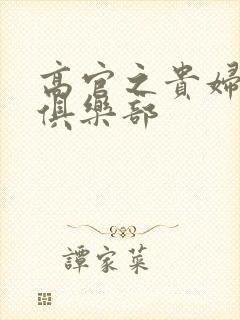 高官之貴婦
俱樂部
譚家菜